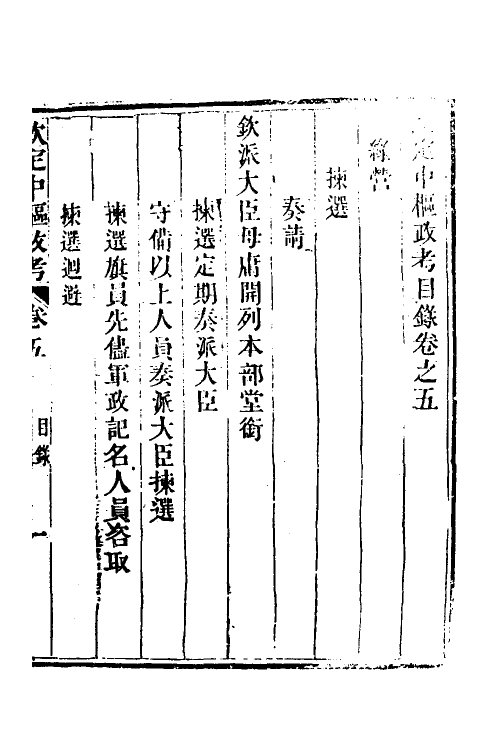 定中樞政考目錄卷之五
綠營
揀選
奏請
欽派大臣毋庸開列本部堂銜
揀選定期奏派大臣
守備以上人員奏派大臣揀選
揀選旗員先儘軍政記名人員咨取
揀選迴避
欽定中樞政考 卷五 目錄 一